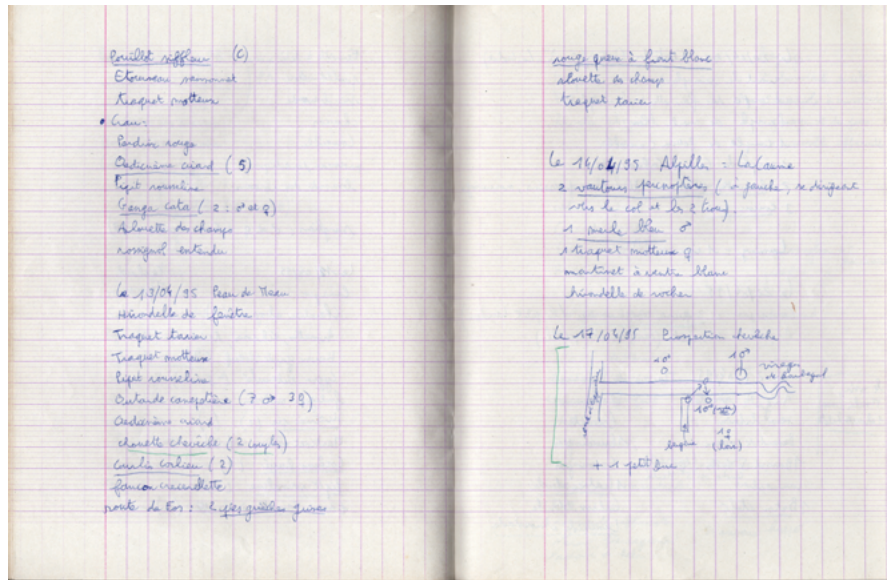 Pouillot siffleur (C)
Etourneau sansonnet
traquet motteux
• Crau:
Perdrix rouge
Oedicnème criard (5)
Pipit rousseline
Ganga cata (2 : ♂ et ♀)
Alouette des champs
rossignol entendu
Le 13/04/95 Peau de Meau
Hirondelle de fenêtre
Traquet tarier
Traquet motteux
Pipit rousseline
Outarde canepetière (7 ♂ 3 ♀)
Oedicnème criard
chouette chevêche (2 couples)
Courlis corlieu (2)
faucon crecerellette
route de Fos : 2 pies grièches grises
rouge queue à front blanc
alouette des champs
traquet tarier
Le 14/04/95 Alpilles : La Caume
2 vautours percnoptères (à gauche, se dirigeant
vers le col et les 2 trous).
1 merle bleu ♂
1 traquet motteux ♀
martinet à ventre blanc
hirondelle de rocher
Le 17/04/95 Prospection chevêche
1♂
1♂
virages
1♂
1♀
(loin)
+ 1 petit duc